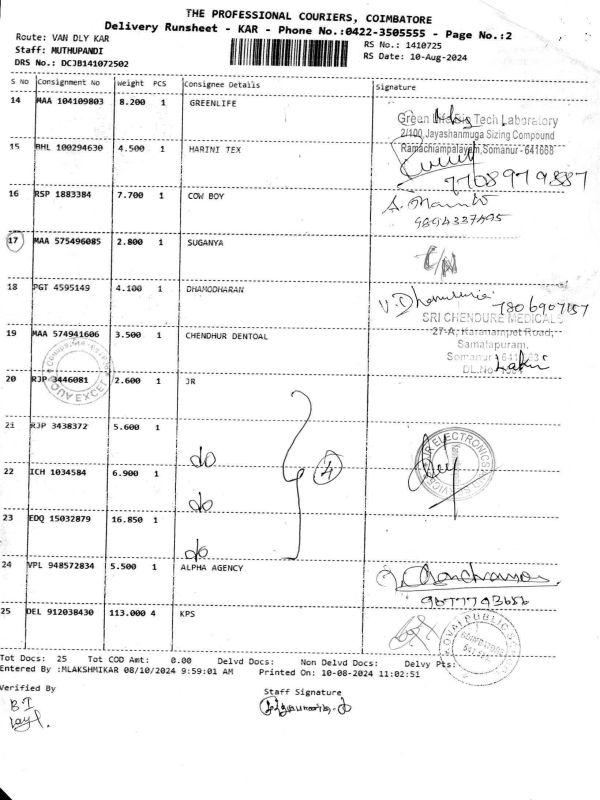 THE PROFESSIONAL COURIERS, COIMBATORE
Delivery Runsheet - KAR - Phone No.:0422-3505555 - Page No.:2
Route: VAN DLY KAR
RS No.: 1410725
Staff: MUTHUPANDI
RS Date: 10-Aug-2024
DRS No.: DCJB141072502
S No Consignment No Weight PCS Consignee Details Signature
14 MAA 104109803 8.200 1 GREENLIFE
Tech Laboratory
2/100, Jayashanmuga Sizing Compound
Ramachiampalayam, Somanur - 641668
15 BHL 100294630 4.500 1 HARINI TEX
7708979887
16 RSP 1883384 7.700 1 COW BOY
9894337495
17 MAA 575496085 2.800 1 SUGANYA
18 PGT 4595149 4.100 1 DHAMODHARAN
7806907157
SRI CHENDURE MEDICALS
27-A, Karanampet Road,
Samalapuram,
19 MAA 574941606 3.500 1 CHENDHUR DENTOAL
Somanur
DL.No
20 RJP 3446081 2.600 1 JR
21 RJP 3438372 5.600 1
do
JR ELECTRONICS
4
22 ICH 1034584 6.900 1
do
23 EDQ 15032879 16.850 1
do
24 VPL 948572834 5.500 1 ALPHA AGENCY
9877793656
25 DEL 912038430 113.000 4 KPS
Tot Docs: 25 Tot COD Amt: 0.00 Delvd Docs: Non Delvd Docs: Delvy Pts:
Entered By :MLAKSHMIKAR 08/10/2024 9:59:01 AM Printed On: 10-08-2024 11:02:51
Verified By
Staff Signature